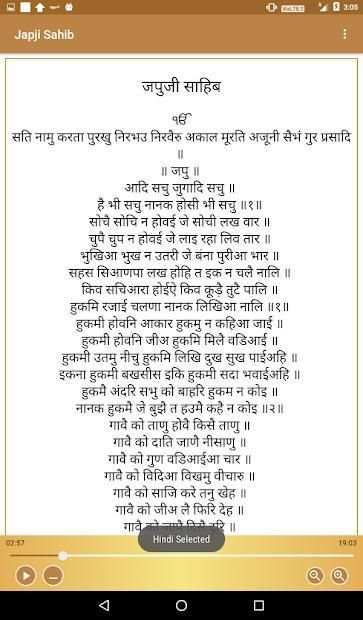 VoLTE 2 3:05
Japji Sahib
जपुजी साहिब
ੴ
सति नामु करता पुरखु निरभउ निरवैरु अकाल मूरति अजूनी सैभं गुर प्रसादि
॥
॥ जपु ॥
आदि सचु जुगादि सचु ॥
है भी सचु नानक होसी भी सचु ॥१॥
सोचै सोचि न होवई जे सोची लख वार ॥
चुपै चुप न होवई जे लाइ रहा लिव तार ॥
भुखिआ भुख न उतरी जे बंना पुरीआ भार ॥
सहस सिआणपा लख होहि त इक न चलै नालि ॥
किव सचिआरा होईऐ किव कूड़ै तुटै पालि ॥
हुकमि रजाई चलणा नानक लिखिआ नालि ॥१॥
हुकमी होवनि आकार हुकमु न कहिआ जाई ॥
हुकमी होवनि जीअ हुकमि मिलै वडिआई ॥
हुकमी उतमु नीचु हुकमि लिखि दुख सुख पाईअहि ॥
इकना हुकमी बखसीस इकि हुकमी सदा भवाईअहि ॥
हुकमै अंदरि सभु को बाहरि हुकम न कोइ ॥
नानक हुकमै जे बुझै त हउमै कहै न कोइ ॥२॥
गावै को ताणु होवै किसै ताणु ॥
गावै को दाति जाणै नीसाणु ॥
गावै को गुण वडिआईआ चार ॥
गावै को विदिआ विखमु वीचारु ॥
गावै को साजि करे तनु खेह ॥
गावै को जीअ लै फिरि देह ॥
गावै को
Hindi Selected
02:57 19:03